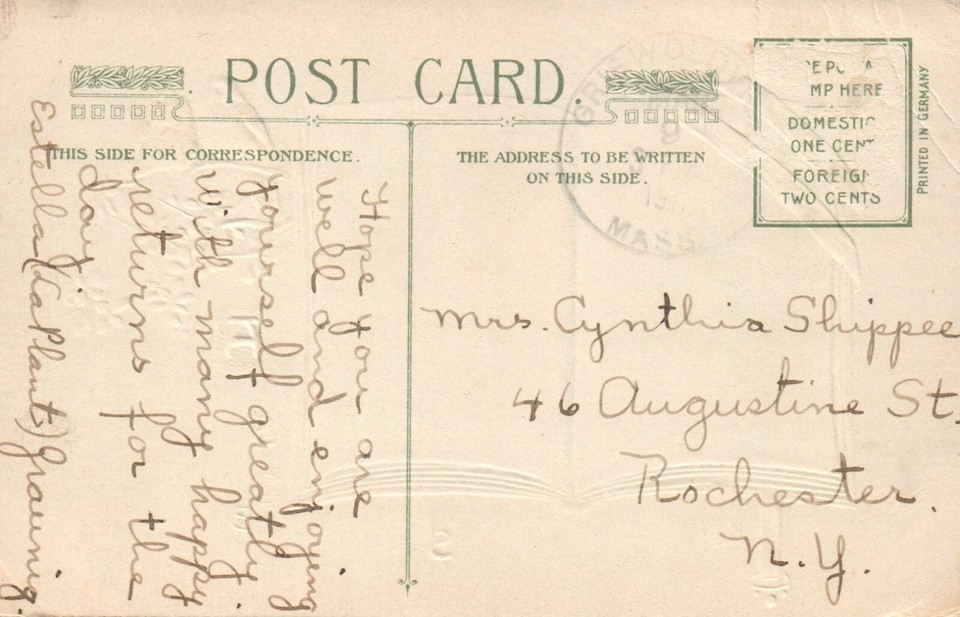 POST CARD.
THIS SIDE FOR CORRESPONDENCE.
THE ADDRESS TO BE WRITTEN
ON THIS SIDE.
MP HERE
DOMESTIC
ONE CENT
FOREIGN
TWO CENTS
PRINTED IN GERMANY
MASS.
Hope you are
well and enjoying
yourself greatly.
With many happy
returns for the
day.
Estella (LaPlant) Grawnig.
Mrs. Cynthia Shippee
46 Augustine St.
Rochester.
N.Y.